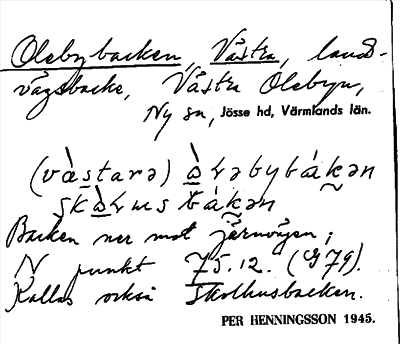 Olebybacken, Västra, lands-
vägsbacke, Västra Olebyn,
Ny sn, Jösse hd, Värmlands län.
(và̀starə) ə̀ɬəbybákən
skə̀ɬus bákən
Backen ner mot järnvägen;
N punkt 75.12. (G79).
Kallas också Skolhusbacken.
PER HENNINGSSON 1945.